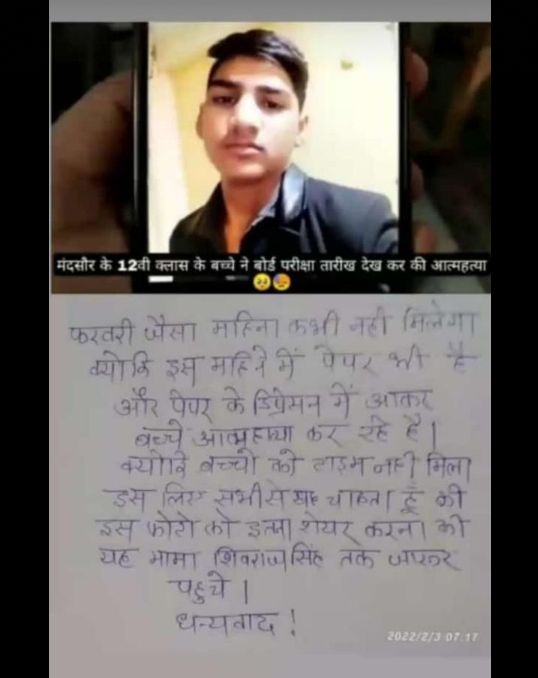 मंदसौर के 12वी क्लास के बच्चे ने बोर्ड परीक्षा तारीख देख कर की आत्महत्या
फरवरी जैसा महिना कभी नही मिलेगा
क्योकि इस महिने में पेपर भी है
और पेपर के डिप्रेसन में आकर
बच्चे आत्महत्या कर रहे है।
क्योकि बच्चो को टाइम नही मिला
इस लिए सभी से यह चाहता हूँ की
इस फोटो को इतना शेयर करना की
यह मामा शिवराज सिंह तक जरूर
पहुचे।
धन्यवाद !
2022/2/3 07:17